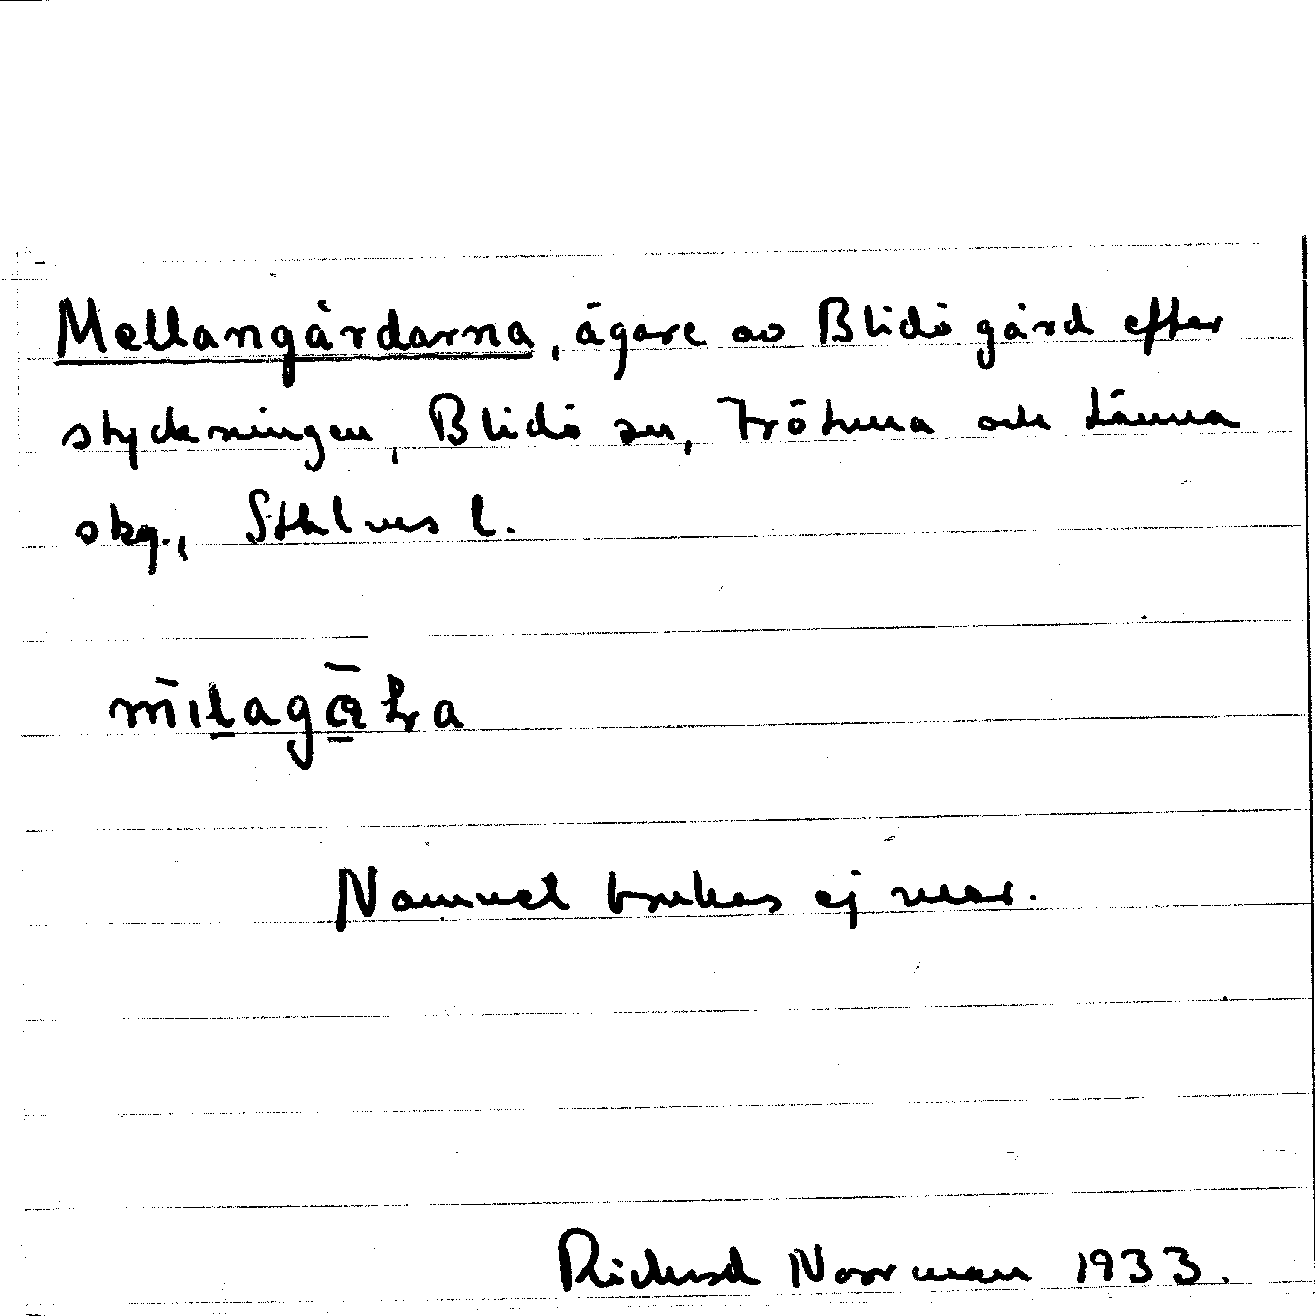 Mellangårdarna, ägare av Blidö gård efter
styckningen, Blidö sn, Frötuna och Länna
skg., Sthlms l.
Namnet brukas ej mer.
Richard Norrman 1933.